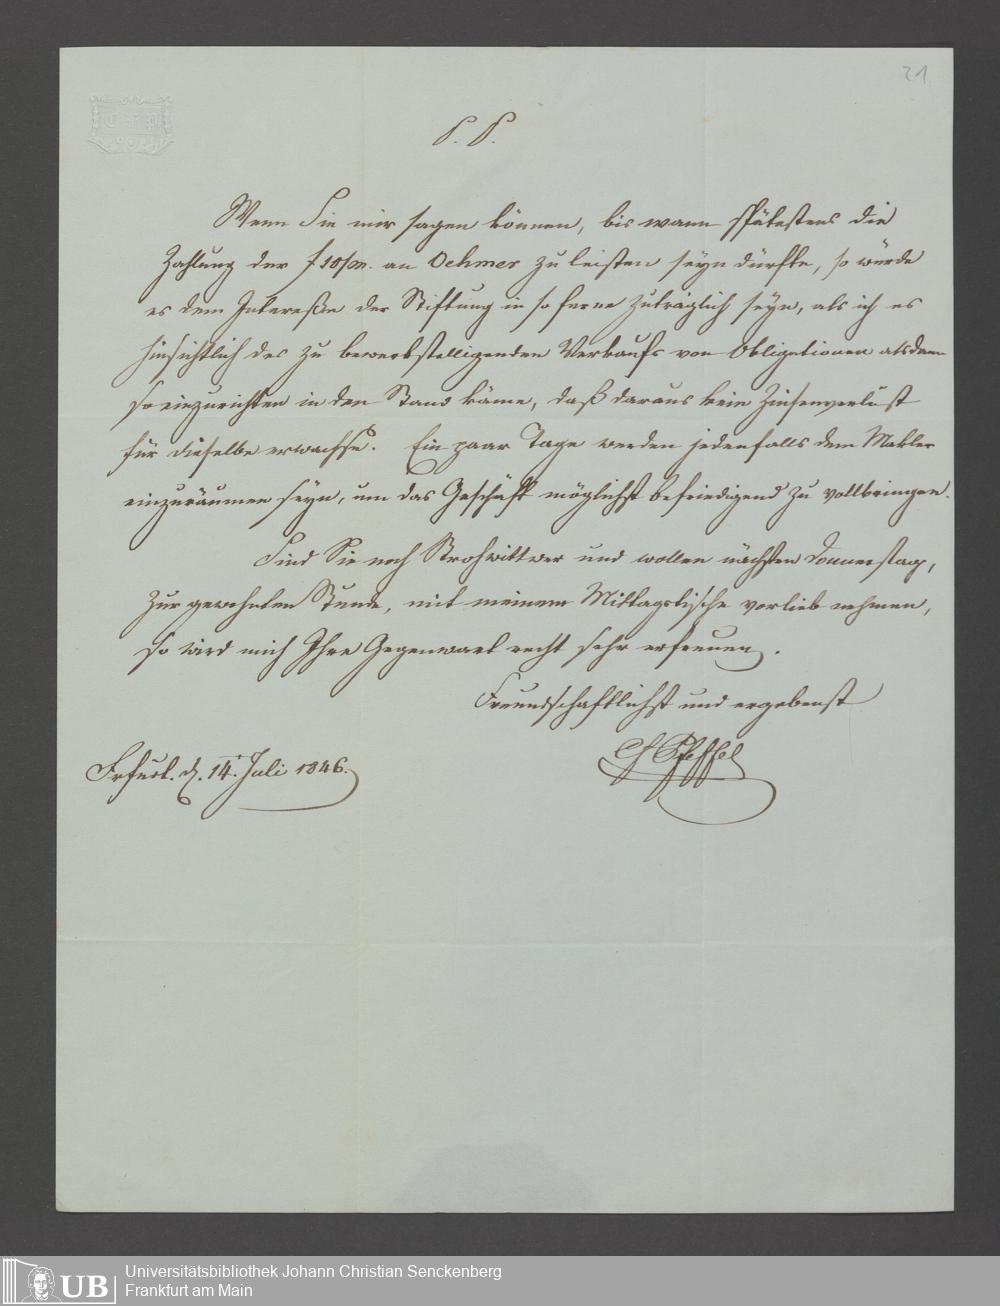 21
P. P.
Wenn Sie mir sagen können, bis wann spätestens die
Zahlung der f 10/m. an Oehmer zu leisten seyn dürfte, so würde
es dem Intereße der Stiftung in so ferne zuträglich seyn, als ich es
hinsichtlich des zu bewerkstelligenden Verkaufs von Obligationen alsdann
so einzurichten in den Stand käme, daß daraus kein Zinsenverlust
für dieselbe erwachse. Ein paar Tage werden jedenfalls dem Makler
einzuräumen seyn, um das Geschäft möglichst befriedigend zu vollbringen.
Sind Sie noch Strohwittwer und wollen nächsten Donnerstag,
zur gewohnten Stunde, mit meinem Mittagstische vorlieb nehmen,
so wird mich Ihre Gegenwart recht sehr erfreuen.
Freundschaftlichst und ergebenst
Pfeffel
Frfurt. d. 14. Juli 1846.
UB
Universitätsbibliothek Johann Christian Senckenberg
Frankfurt am Main